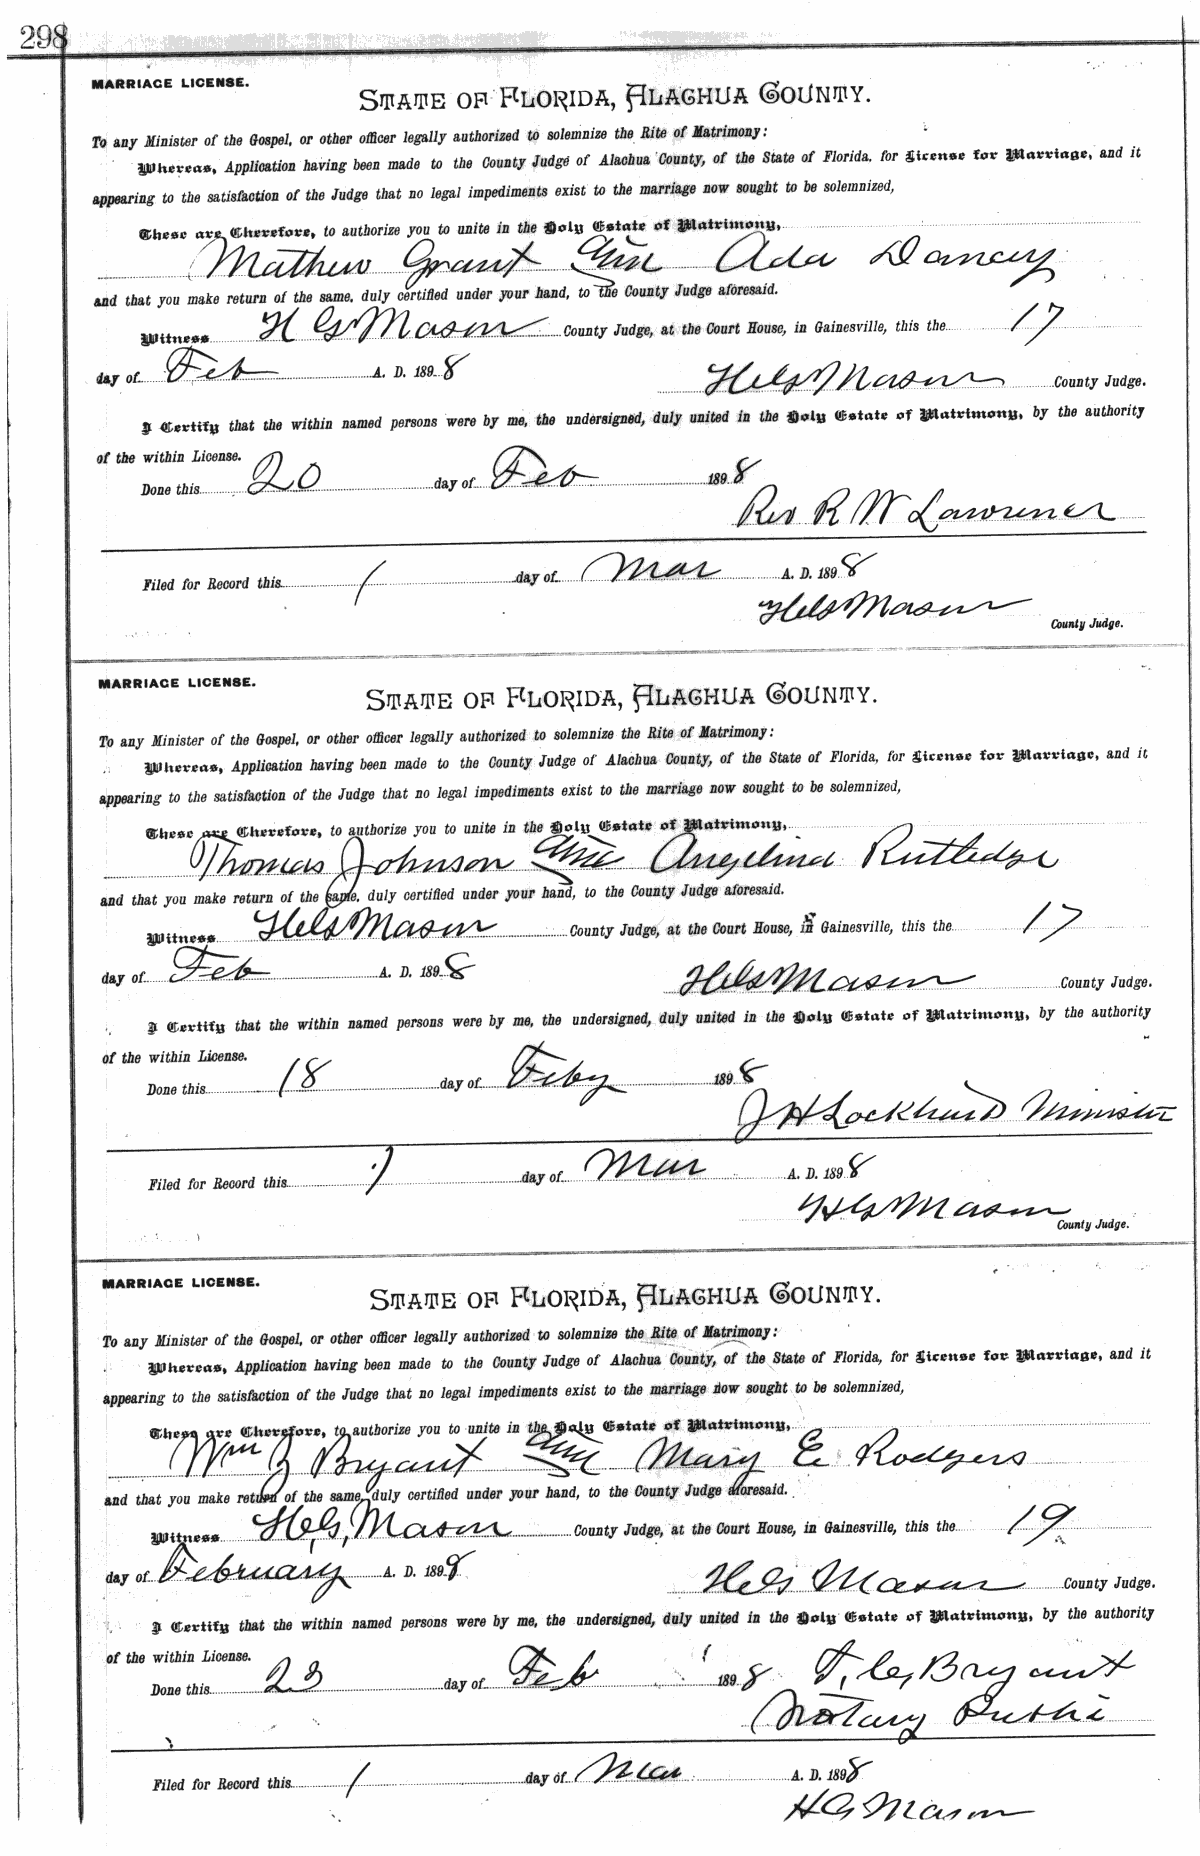 298
MARRIAGE LICENSE.
STATE OF FLORIDA, ALACHUA COUNTY.
To any Minister of the Gospel, or other officer legally authorized to solemnize the Rite of Matrimony:
Whereas, Application having been made to the County Judge of Alachua County, of the State of Florida, for License for Marriage, and it
appearing to the satisfaction of the Judge that no legal impediments exist to the marriage now sought to be solemnized,
These are Therefore, to authorize you to unite in the Holy Estate of Matrimony,
Mathew Grant and Ada Dancy
and that you make return of the same, duly certified under your hand, to the County Judge aforesaid.
Witness H G Mason County Judge, at the Court House, in Gainesville, this the 17
day of Feb A. D. 1898 H G Mason County Judge.
I Certify that the within named persons were by me, the undersigned, duly united in the Holy Estate of Matrimony, by the authority
of the within License.
Done this 20 day of Feb 1898
Rev R W Lawrence
Filed for Record this 1 day of Mar A. D. 1898
H G Mason
County Judge.
MARRIAGE LICENSE.
STATE OF FLORIDA, ALACHUA COUNTY.
To any Minister of the Gospel, or other officer legally authorized to solemnize the Rite of Matrimony:
Whereas, Application having been made to the County Judge of Alachua County, of the State of Florida, for License for Marriage, and it
appearing to the satisfaction of the Judge that no legal impediments exist to the marriage now sought to be solemnized,
These are Therefore, to authorize you to unite in the Holy Estate of Matrimony,
Thomas Johnson and Angelina Rutledge
and that you make return of the same, duly certified under your hand, to the County Judge aforesaid.
Witness H G Mason County Judge, at the Court House, in Gainesville, this the 17
day of Feb A. D. 1898 H G Mason County Judge.
I Certify that the within named persons were by me, the undersigned, duly united in the Holy Estate of Matrimony, by the authority
of the within License.
Done this 18 day of Feby 1898
J H Lockhart Minister
Filed for Record this 1 day of Mar A. D. 1898
H G Mason
County Judge.
MARRIAGE LICENSE.
STATE OF FLORIDA, ALACHUA COUNTY.
To any Minister of the Gospel, or other officer legally authorized to solemnize the Rite of Matrimony:
Whereas, Application having been made to the County Judge of Alachua County, of the State of Florida, for License for Marriage, and it
appearing to the satisfaction of the Judge that no legal impediments exist to the marriage now sought to be solemnized,
These are Therefore, to authorize you to unite in the Holy Estate of Matrimony,
Wm Z Bryant and Mary E Rodgers
and that you make return of the same, duly certified under your hand, to the County Judge aforesaid.
Witness H, G, Mason County Judge, at the Court House, in Gainesville, this the 19
day of February A. D. 1898 H G Mason County Judge.
I Certify that the within named persons were by me, the undersigned, duly united in the Holy Estate of Matrimony, by the authority
of the within License.
Done this 23 day of Feb 1898 T, C, Bryant
Notary Public
Filed for Record this 1 day of Mar A. D. 1898
H G Mason